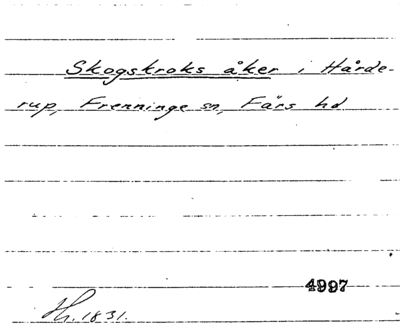 Skogskroks åker i Hårde-
rup, Frenninge sn, Färs hd
4997
Hy. 1831.